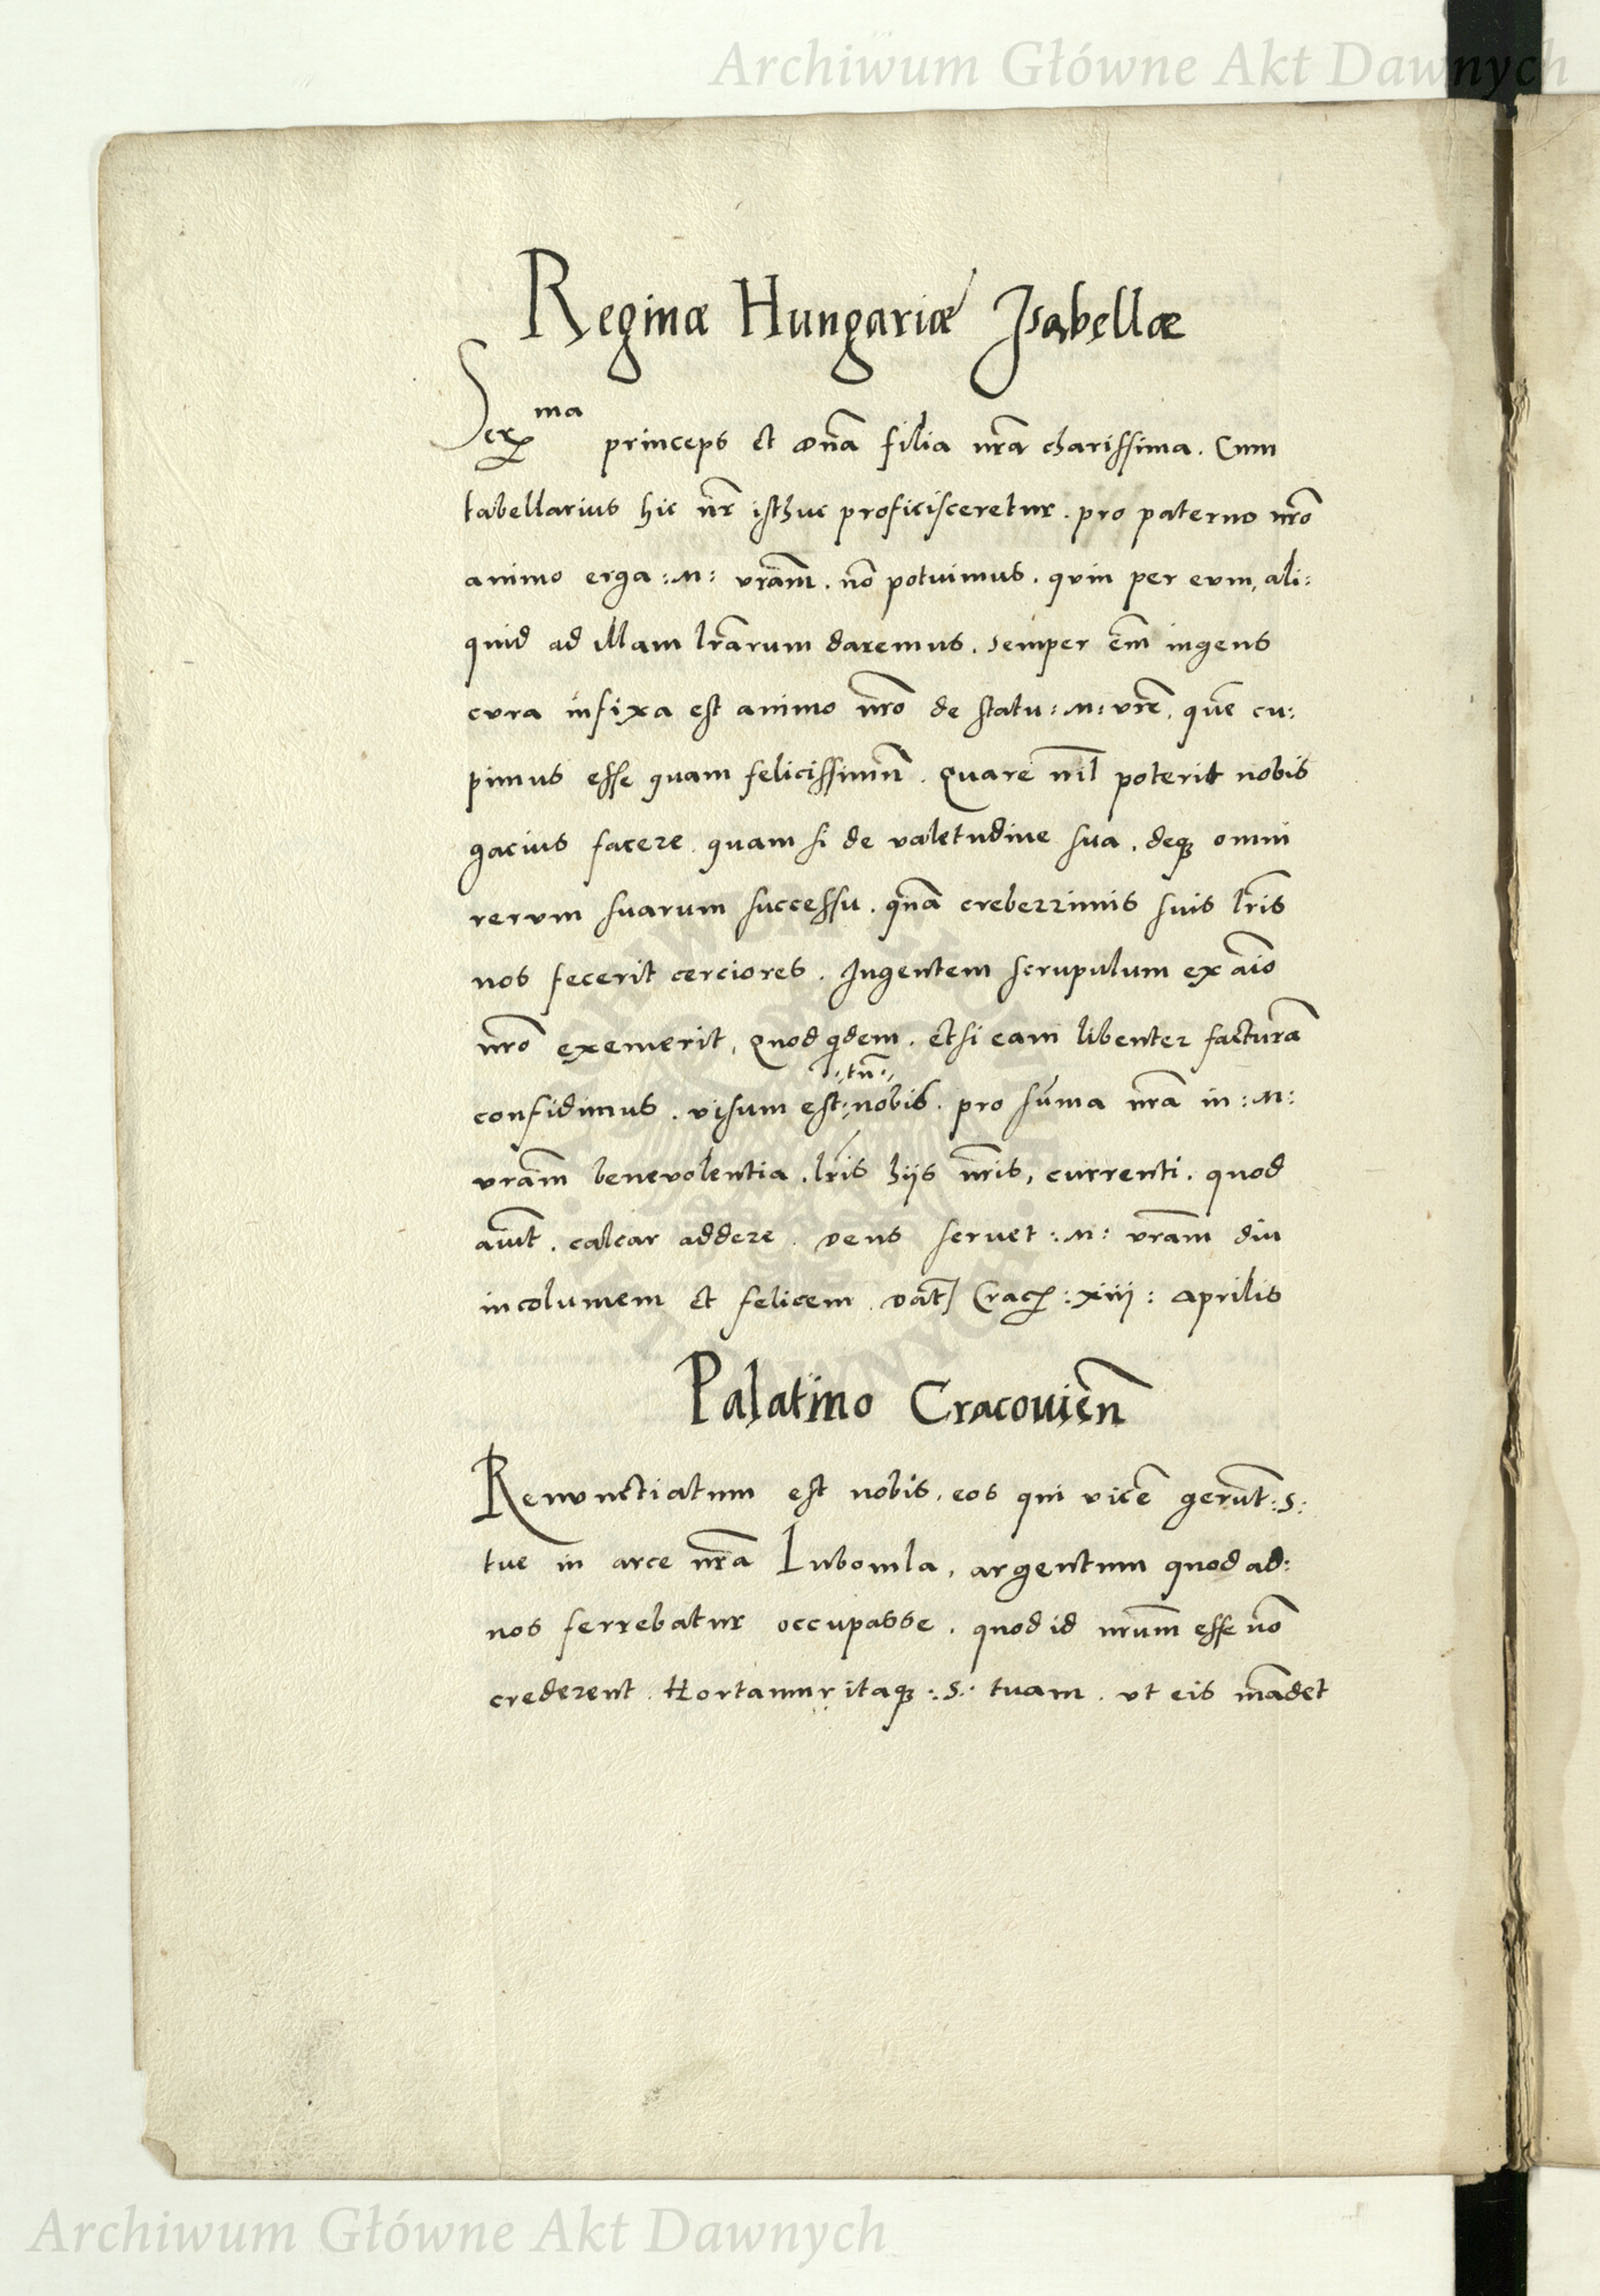 Archiwum Główne Akt Dawnych
Reginæ Hungariæ Isabellæ
Ser^ma princeps et dña filia nr̃a charissima. Cum
tabellarius hic nr̃ isthuc proficisceretur. pro paterno nr̃o
animo erga :M: vr̃am. nõ potuimus. quin per eum, ali:
quid ad illam lr̃arum daremus. semper em̃ ingens
cura infixa est animo nr̃o de statu :M: vr̃e. quẽ cu:
pimus esse quam felicissimũ. Quare nil̃ poterit nobis
gacius facere quam si de valetudine sua. deqꝫ omni
rerum suarum successu. qñã creberrimis suis lr̃is
nos fecerit cerciores. Ingentem scrupulum ex aĩo
nr̃o exemerit, Quod qdem. etsi eam libenter facturã
confidimus. visum est :tñ: nobis. pro sũma nr̃a in :M:
vr̃am benevolentia. lr̃is hijs nr̃is, currenti. quod
aiũt. calcar addere. Deus servet :M: vr̃am diu
incolumem et felicem. Dat̃ Crac̃ :xiiij: Aprilis
Palatino Cracovień
Renunctiatum est nobis, eos qui vicẽ gerũt :S:
tue in arce nr̃a Lubomla, argentum quod ad:
nos ferrebatur occupasse. quod id nr̃um esse nõ
crederent. Hortamur itaqꝫ :S: tuam. ut eis mãdet
Archiwum Główne Akt Dawnych